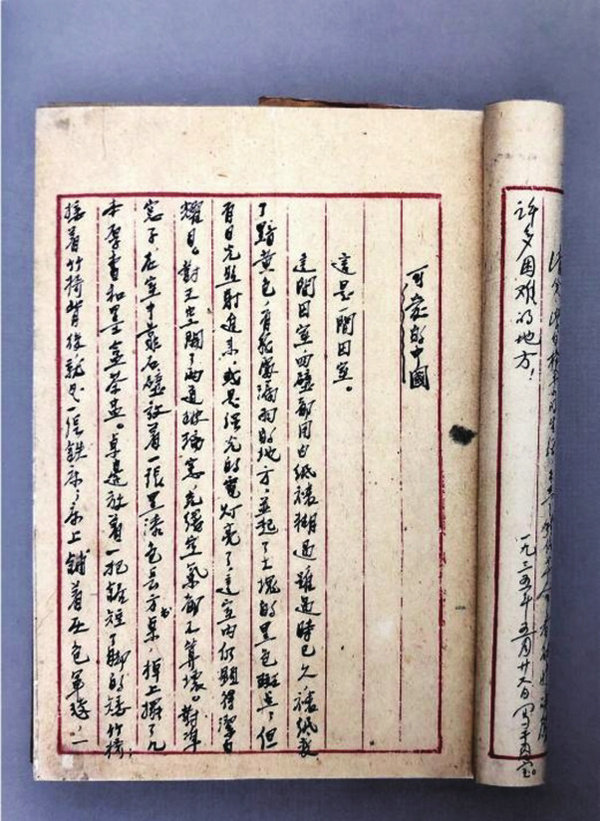 许多困难的地方！ 一九三五年五月廿六日写于囚室。
可爱的中國
這是一間囚室。
這間囚室，四壁都用白紙裱糊過，雖過時已久，裱紙变
了黯黄色，有幾處漏雨的地方，並起了大塊的黑色斑点；但
有日光照射進来，或是强光的電灯亮了，這室内仍顕得潔白
耀目。對天空開了两道玻璃窓，光線空氣都不算壞。對準
窓子，在室中靠石壁放着一張黑漆色長方書桌，棹上擺了几
本厚書和墨盒茶盅。卓邊放着一把鋸短了脚的矮竹椅；
接着竹椅背後，就是一張鉄床；床上鋪着灰色軍毯，一